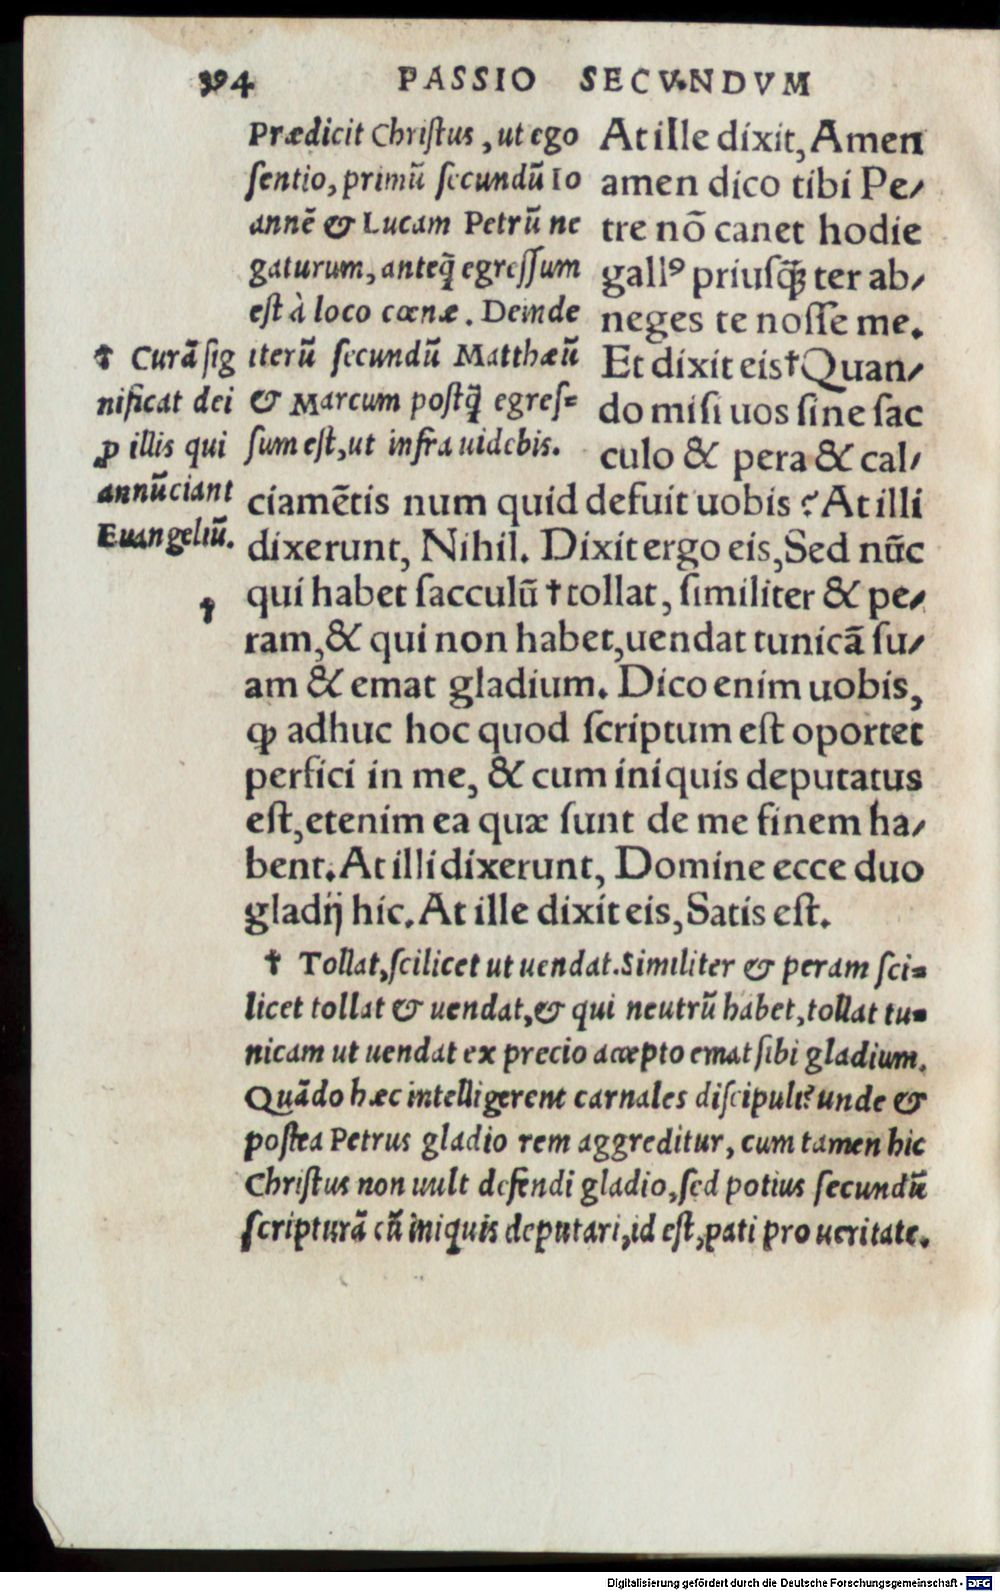 394 PASSIO SECVNDVM
Prædicit Christus, ut ego
sentio, primũ secundũ Io
annẽ & Lucam Petrũ ne
gaturum, anteq̃ egressum
est à loco cœnæ. Deinde
iterũ secundũ Matthæũ
& Marcum postq̃ egres=
sum est, ut infra uidebis.
✝ Curã sig
nificat dei
ꝓ illis qui
annũciant
Euangeliũ.
At ille dixit, Amen
amen dico tibi Pe/
tre nõ canet hodie
gallꝰ priusq̃ʒ ter ab/
neges te nosse me.
Et dixit eis ✝ Quan/
do misi uos sine sac
culo & pera & cal/
ciamẽtis num quid defuit uobis? At illi
dixerunt, Nihil. Dixit ergo eis, Sed nũc
qui habet sacculũ ✝ tollat, similiter & pe/
✝
ram, & qui non habet, uendat tunicã su/
am & emat gladium. Dico enim uobis,
ꝙ adhuc hoc quod scriptum est oportet
perfici in me, & cum iniquis deputatus
est, etenim ea quæ sunt de me finem ha/
bent. At illi dixerunt, Domine ecce duo
gladij hic. At ille dixit eis, Satis est.
✝ Tollat, scilicet ut uendat. Similiter & peram sci=
licet tollat & uendat, & qui neutrũ habet, tollat tu=
nicam ut uendat ex precio accepto emat sibi gladium.
Quãdo hæc intelligerent carnales discipuli? unde &
postea Petrus gladio rem aggreditur, cum tamen hic
Christus non uult defendi gladio, sed potius secundũ
scripturã cũ iniquis deputari, id est, pati pro ueritate.
Digitalisierung gefördert durch die Deutsche Forschungsgemeinschaft - DFG